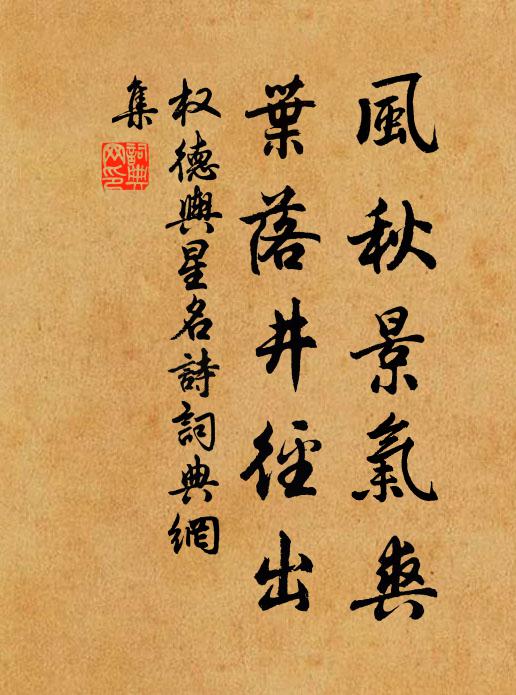 風秋景氣爽
葉落井徑出
权德輿星名詩詞典網
集
詞典網印